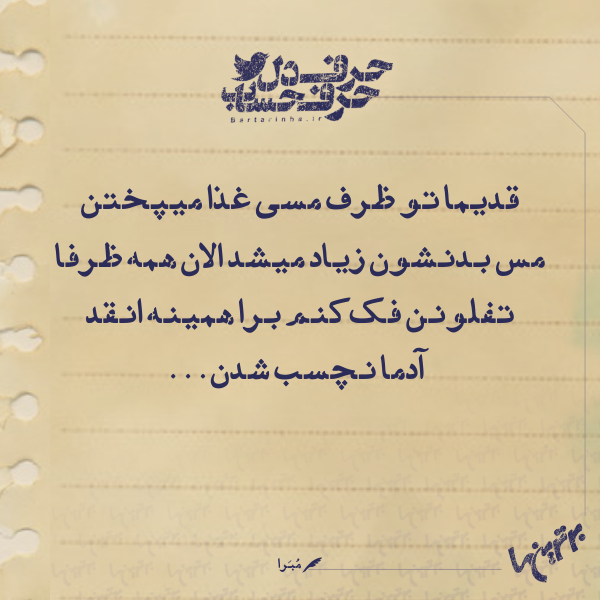 حرف دل
حرف حساب
Bartarinha.ir
قدیما تو ظرف مسی غذا میپختن
مس بدنشون زیاد میشد الان همه ظرفا
تفلونن فک کنم برا همینه انقد
آدما نچسب شدن...
مُبَرا
برترین‌ها